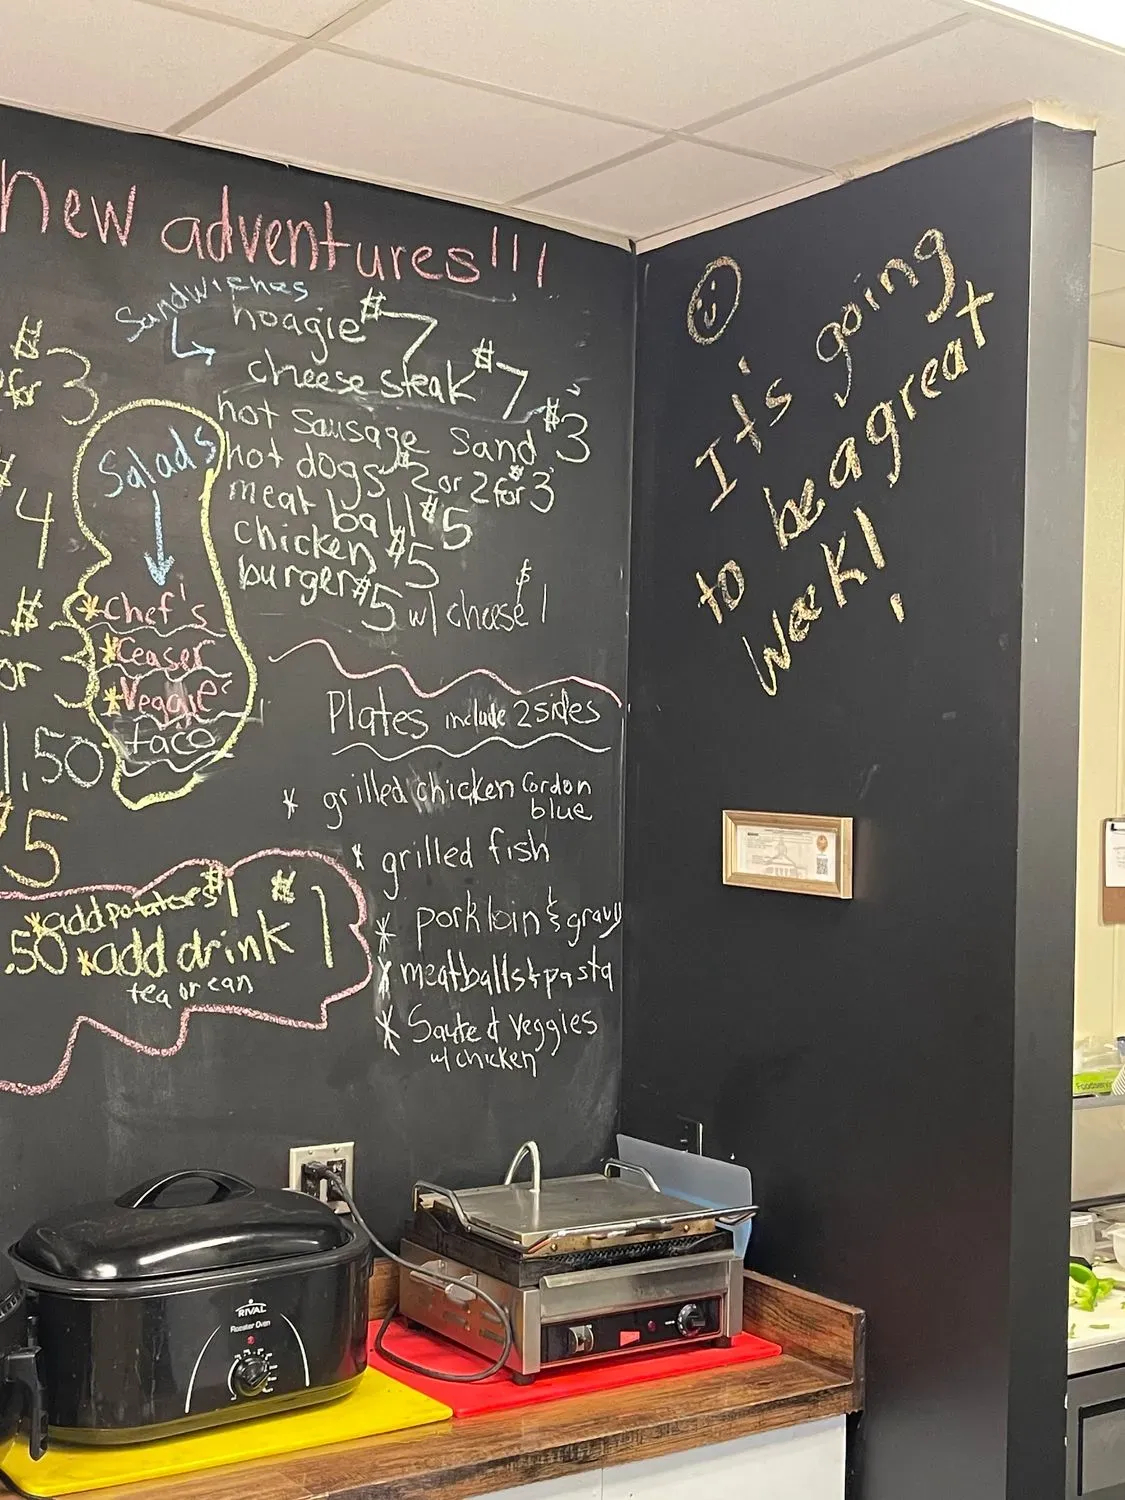 new adventures!!!
Sandwiches
hoagie $7
cheese steak $7
hot sausage sand $3
hot dogs $2 or 2 for $3
meat ball $5
chicken $5
burger $5 w/ cheese $1
$
for 3
$
4
$
or 3
1.50
$5
Salads
*Chef's
*Ceaser
*Veggie
taco
Plates include 2 sides
* grilled chicken Cordon
blue
* grilled fish
* pork loin & gravy
* meatballs & pasta
* Sauted Veggies
w/ chicken
*add potatoes $1
.50 *add drink $1
tea or can
It's going
to be a great
week!
RIVAL
Roaster Oven
Foodservi